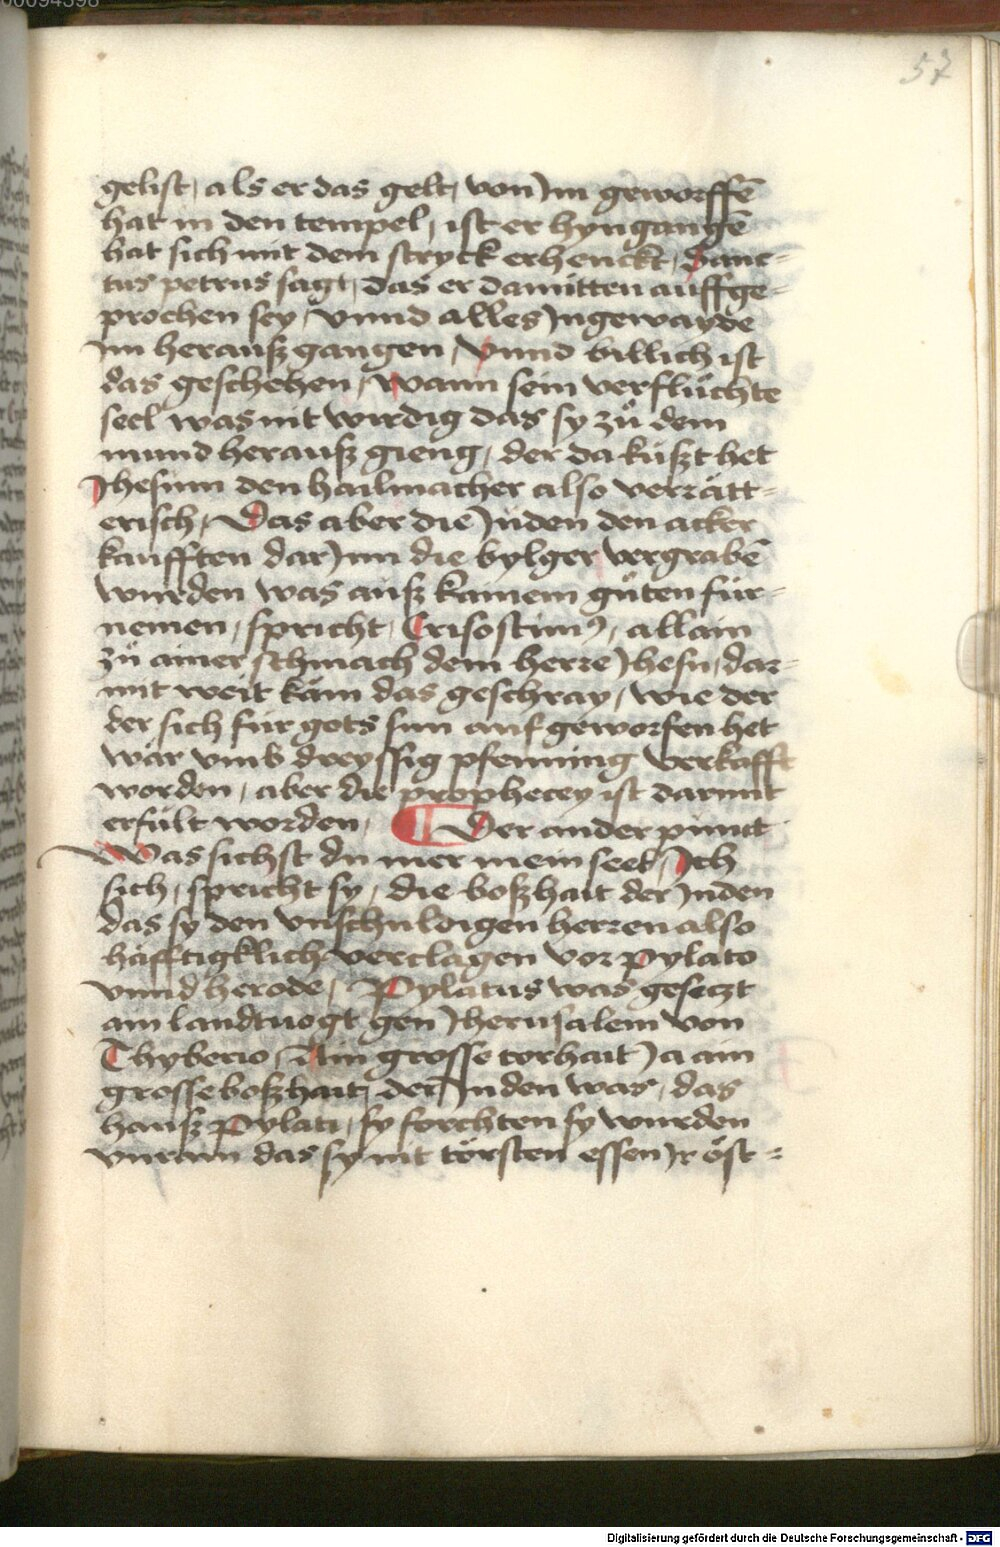 57
gelist, als er das gelt, von Jm geworffē
hat in den tempel, ist er hyngangē
hat sich mit dem stryck erhenckt, Sanc=
tus petrus sagt, das er damitten auffge=
prochen sey, vnnd alles Jngewayde
im herauß gangen, Vnnd billich ist
das geschehen, Wann sein verflůchte
seel was nit wirdig das sy zů dem
mund herauß gieng, der da küßt het
Jhesum den hailmacher also verrätt=
erisch, Das aber die Juden den acker
kaufften dar Jnn die bylger vergrabē
wurden was auß kainem gůten für=
nemen, spricht Crisostimꝰ, allain
zů ainer schmach dem herre Jhesu, dar=
mit weit käm das geschray, wie der
der sich für gots sun auf geworfen het
wär vmb dreyssig pfenning verkafft
worden, aber die prophecey ist darmit
erfült worden, ¶ Der ander punct
Was sichst du mer mein seel, Ich
sich, spricht sy, die boßhait der Juden
das sy den vnschuldigen herren also
häfftigklich verclagen vor pylato
vnnd herode, Pylatus was gesetzt
ain landtuogt gen Jherusalem von
Thyberio, Ain grosse torhait Ja ain
grosse boßhait, der Juden was, das
hauß Pylati, sy forchten sy wurden
vnrain das sy nit törsten essen Jr öst=
Digitalisierung gefördert durch die Deutsche Forschungsgemeinschaft - DFG